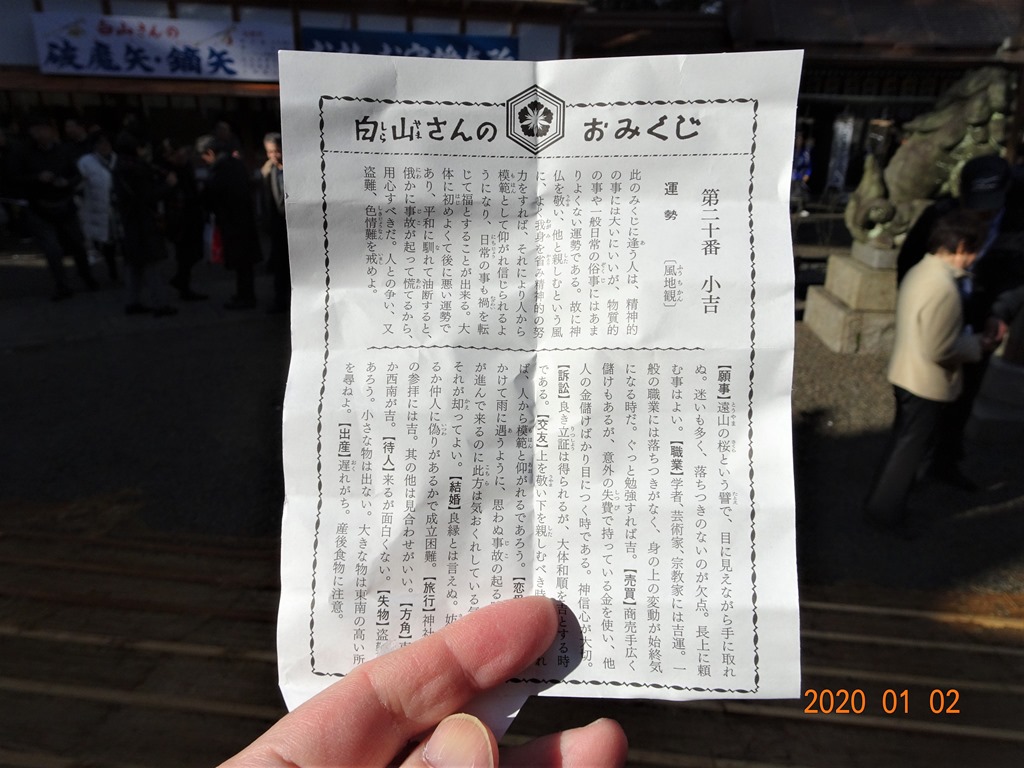 白山さんの
破魔矢・鏑矢
白山さんの おみくじ
第二十番 小吉
運勢 〔風地観〕
此のみくじに逢う人は、精神的
の事には大いにいいが、物質的
の事や一般日常の俗事にはあま
りよくない運勢である。故に神
仏を敬い、他と親しむという風
に、よく我身を省み精神的の努
力をすれば、それにより人から
模範として仰がれ信じられるよ
うになり、日常の事も禍を転
じて福とすることが出来る。大
体に初めよくて後に悪い運勢で
あり、平和に馴れて油断すると、
俄かに事故が起って慌てるから、
用心すべきだ。人との争い、又
盗難、色情難を戒めよ。
【願事】遠山の桜という譬で、目に見えながら手に取れ
ぬ。迷いも多く、落ちつきのないのが欠点。長上に頼
む事はよい。【職業】学者、芸術家、宗教家には吉運。一
般の職業には落ちつきがなく、身の上の変動が始終気
になる時だ。ぐっと勉強すれば吉。【売買】商売手広く
儲けもあるが、意外の失費で持っている金を使い、他
人の金儲けばかり目につく時である。神信心が大切。
【訴訟】良き立証は得られるが、大体和順を吉とする時
である。【交友】上を敬い下を親しむべき時
れ
ば、人から模範と仰がれるであろう。
かけて雨に遇うように、思わぬ事故の起る
が進んで来るのに此方は気おくれしている
それが却ってよい。【結婚】良縁とは言えぬ。
るか仲人に偽りがあるかで成立困難。【旅行】神社
の参拝には吉。其の他は見合わせがいい。【方角】
か西南が吉。【待人】来るが面白くない。【失物】盗
あろう。小さな物は出ない。大きな物は東南の高い所
を尋ねよ。【出産】遅れがち。産後食物に注意。
2020 01 02